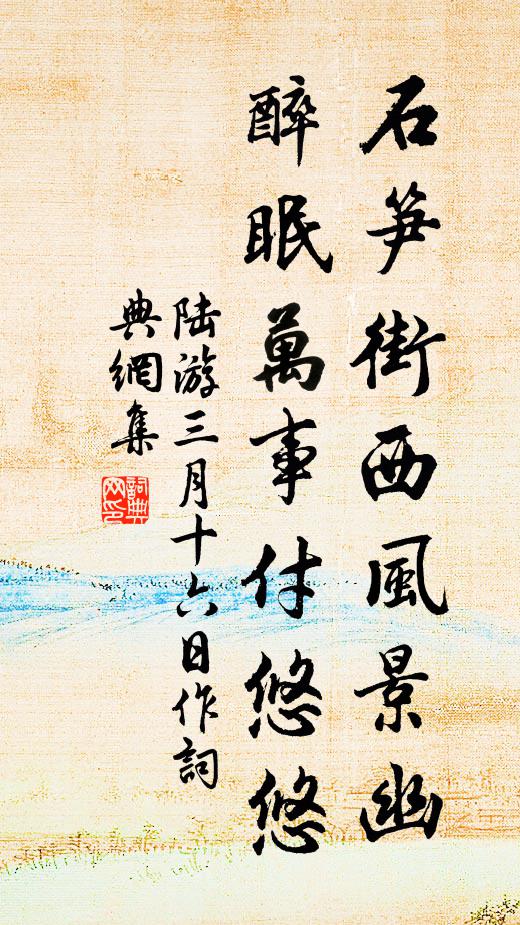 石笋街西風景幽
醉眠萬事付悠悠
陆游三月十六日作詞
典網集
詞典
网印